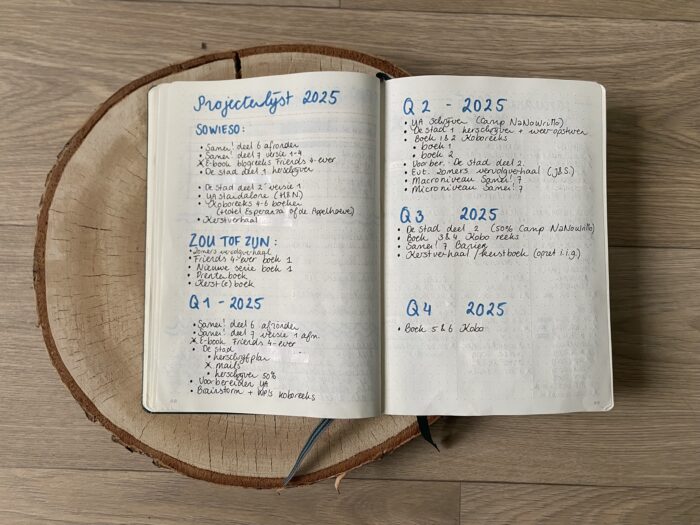 Projectenlijst 2025
SOWIESO:
• Samei! deel 6 afronden
• Samei! deel 7 versie 1-4
x E-book blogreeks Friends 4-ever
• De stad deel 1 herschrijven
• De stad deel 2 versie 1
• YA standalone (H&N)
• Koboreeks 4-6 boeken
(Hotel Esperanza of de Appelhoeve)
• Kerstverhaal
ZOU TOF ZIJN:
• Zomers vervolgverhaal
• Friends 4-ever boek 1
• Nieuwe serie boek 1
• Prentenboek
• Kerst(e)boek
Q1 - 2025
• Samei! deel 6 afronden
• Samei! deel 7 versie 1 afm.
x E-book Friends 4-ever
• De stad
• herschrijfplan
x mails
• herschrijven 50%
• Voorbereiden YA
• Brainstorm + koboreeks
Q2 - 2025
• YA schrijven (Camp NaNoWriMo)
• De stad 1 herschrijven + weer opsturen
• Boek 1 & 2 Koboreeks
• boek 1
• boek 2
• Voorber. De stad deel 2.
• Evt. Zomers vervolgverhaal
• Macroniveau Samei! 7
• Microniveau Samei! 7
Q3 2025
• De Stad deel 2 (50% Camp NaNoWriMo)
• Boek 3 & 4 Kobo reeks
• Samei! 7
• Kerstverhaal / kerstboek (opzet i.i.g)
Q4 2025
• Boek 5 & 6 Kobo